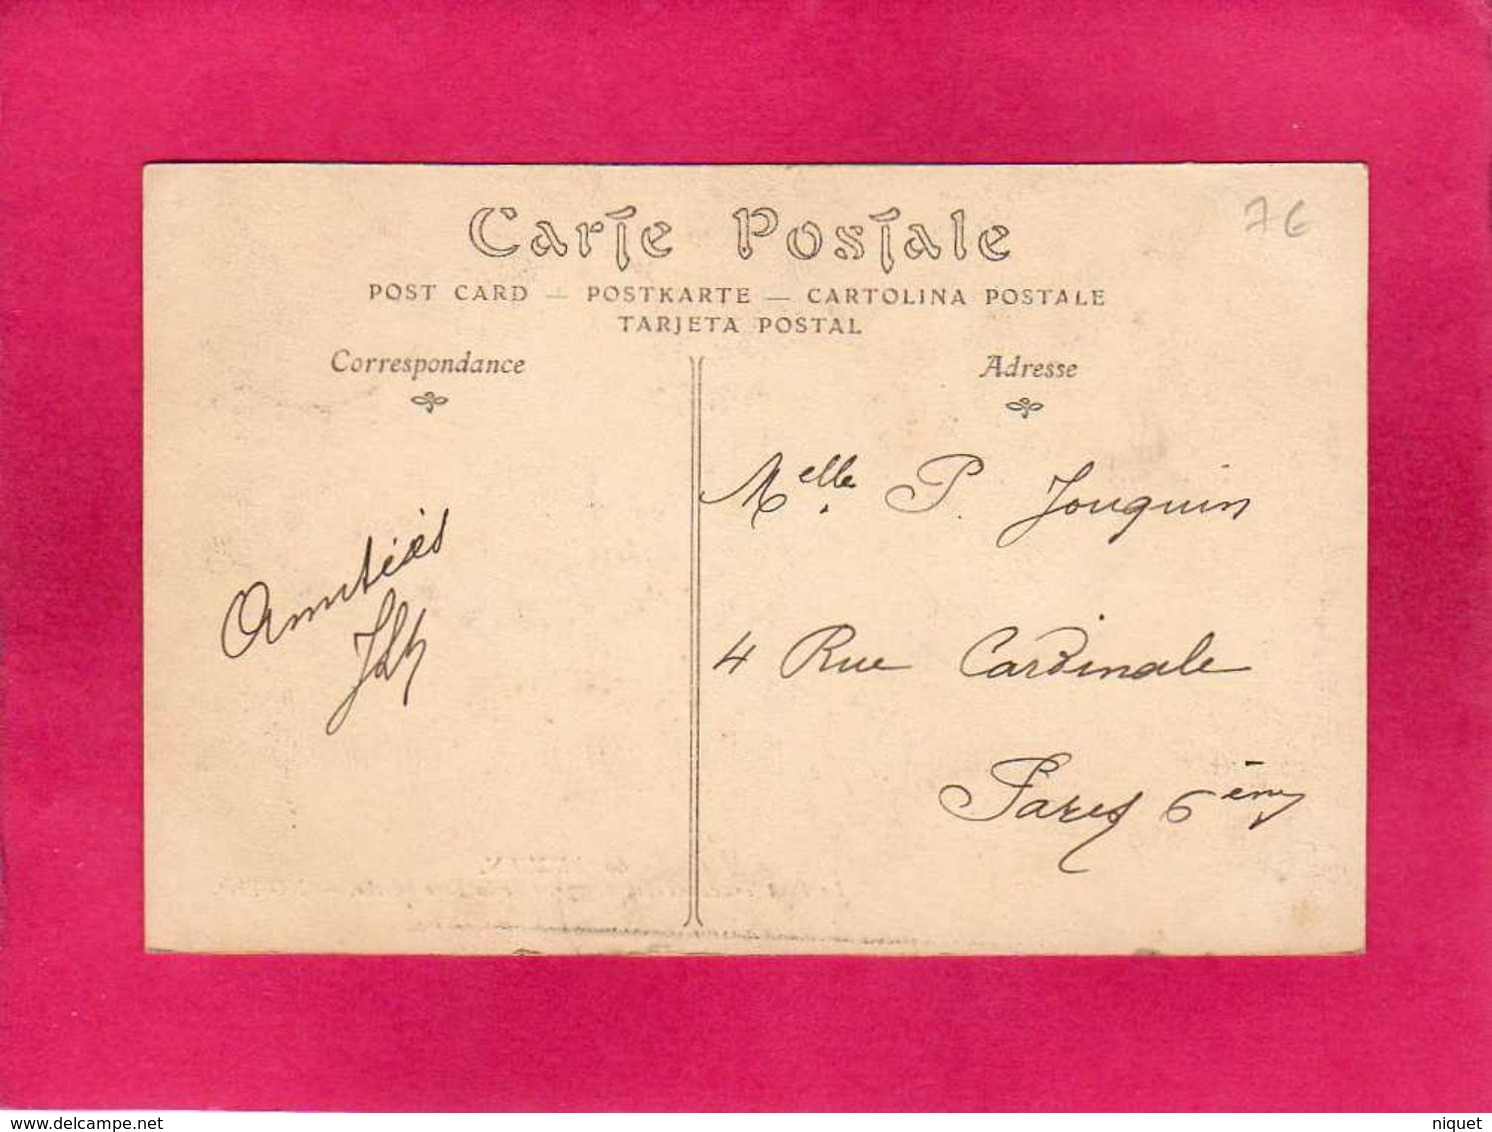 76
Carte Postale
POST CARD — POSTKARTE — CARTOLINA POSTALE
TARJETA POSTAL
Correspondance
Adresse
Melle P. Jouquin
Amitiés
4 Rue Cardinale
Paris 6ème
niquet